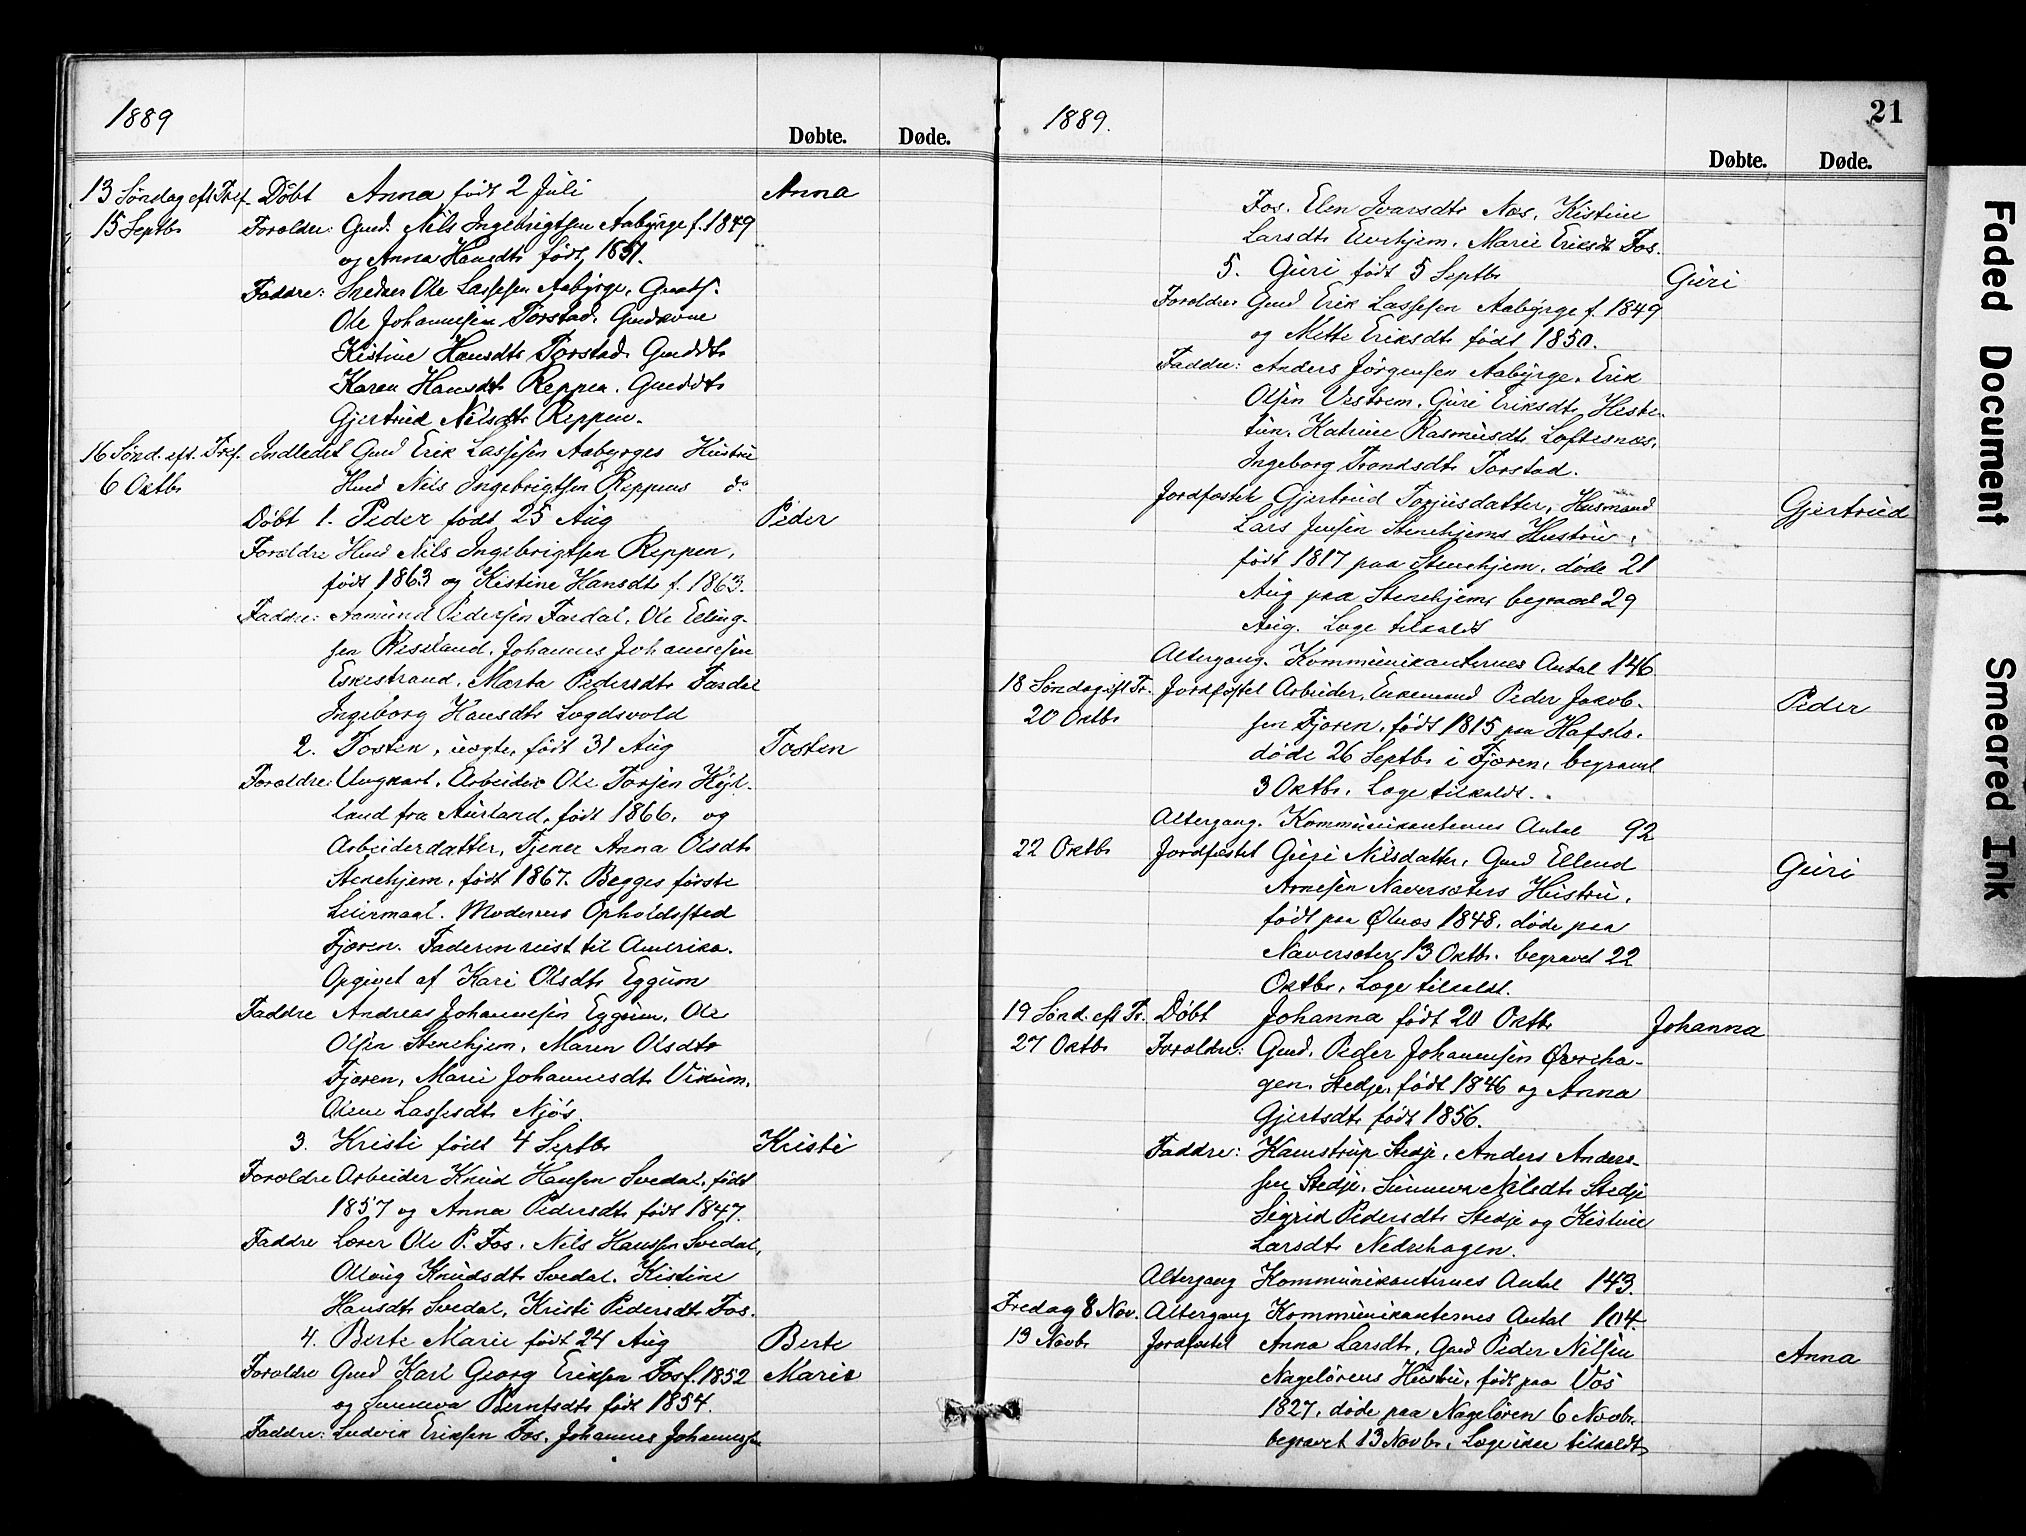 1889
Døbte. Døde.
13 Søndag eft Tref. Døbt Anna født 2 Juli Anna
15 Septbr Forældre: Gmd. Nils Ingebrigtsen Aabyrge f. 1849
og Anna Hansdtr født 1851.
Faddre: Snedker Ole Lassesen Aabyrge, Gmdf.
Ole Johannessen Torstad. Gmdkone
Kistine Hansdtr Torstad. Gmddtr
Karen Hansdtr Reppen. Gmddtr
Gjertrud Nilsdtr Reppen.
16 Sønd. eft. Tref. Indledet Gmd Erik Lassesen Aabyrges Hustru
6 Oktbr Hmd Nils Ingebrigtsen Reppens do
Døbt 1. Peder født 25 Aug Peder
Forældre Hmd Nils Ingebrigtsen Reppen,
født 1863 og Kistine Hansdtr f. 1863.
Faddre: Aamund Pedersen Fardal, Ole Elling-
sen Riseland. Johannes Johannessen
Eskestrand. Marta Pedersdtr Fardal
Ingeborg Hansdtr Lægdsvold
2. Tosten, uægte, født 31 Aug Tosten
Forældre: Ungkarl. Arbeider Ole Torjen Højd-
land fra Aurland, født 1866. og
Arbeiderdatter, Tjener Anna Olsdtr
Stenehjem, født 1867. Begges første
Leiermaal. Moderens Opholdssted
Fjæren. Faderen reist til Amerika.
Opgivet af Kari Olsdtr Eggum
Faddre Andreas Johannessen Eggum, Ole
Olsen Stenehjem, Maren Olsdtr
Fjæren, Marie Johannesdtr Vikum.
Olene Lassesdtr Njøs.
3. Kristi født 4 Septbr Kristi
Forældre Arbeider Knud Hansen Svedal, født
1857 og Anna Pedersdtr født 1847.
Faddre Lærer Ole P. Fos, Nils Hanssen Svedal,
Olloug Knudsdtr Svedal. Kistine
Hansdtr Svedal, Kristi Pedersdtr Fos.
4. Berte Marie født 24 Aug Berte
Forældre Gmd Karl Georg Eriksen Fos f. 1852 Marie
og Sunneva Berntsdtr født 1854.
Faddre: Ludvik Eriksen Fos. Johannes Johannessen
1889. 21
Døbte. Døde.
Fos. Elen Ivarsdtr Næs, Kistine
Larsdtr Elvehjem, Marie Eriksdtr Fos.
5. Guri født 5 Septbr Guri
Forældre Gmd Erik Lassesen Aabyrge f. 1849
og Mette Eriksdtr født 1850.
Faddre: Anders Jørgensen Aabyrge, Erik
Olsen Vestrem. Guri Eriksdtr Heste-
tun. Katrine Rasmusdtr Loftesnæs,
Ingeborg Trondsdtr Torstad.
Jordfæstet Gjertrud Torjusdatter, Husmand Gjertrud
Lars Jensen Stenehjems Hustru,
født 1817 paa Stenehjem, døde 21
Aug paa Stenehjem begravet 29
Aug. Læge tilkaldt
Altergang. Kommunikanternes Antal 146
18 Søndag eft Tr. Jordfæstet Arbeider, Enkemand Peder Jakob- Peder
20 Oktbr sen Fjæren, født 1815 paa Hafslo,
døde 26 Septbr i Fjæren, begravet
3 Oktbr. Læge tilkaldt.
Altergang. Kommunikanternes Antal 92
22 Oktbr Jordfæstet Guri Nilsdatter, Gmd Ellend Guri
Arnesen Naversæters Hustru,
født paa Ølnæs 1848, døde paa
Naversæter 13 Oktbr. begravet 22
Oktbr, Læge tilkaldt.
19 Sønd. eft Tr. Døbt Johanna født 20 Oktbr Johanna
27 Oktbr Forældre: Gmd. Peder Johannesen Øvreha-
gen Stedje, født 1846 og Anna
Gjertsdtr født 1856.
Faddre: Kamstrup Stedje, Anders Anders-
sen Stedje. Sunneva Nilsdtr Stedje
Sigrid Pedersdtr Stedje og Kistine
Larsdtr Nedrehagen.
Altergang Kommunikanternes Antal 143.
Fredag 8 Nov. Altergang Kommunikanternes Antal 104.
13 Novbr Jordfæstet Anna Larsdtr, Gmd Peder Nilsen Anna
Nageløren Hustru, født paa Vos
1827, døde paa Nageløren 6 Novbr.
begravet 13 Novbr, Læge ikke tilkaldt
Faded Document
Smeared Ink